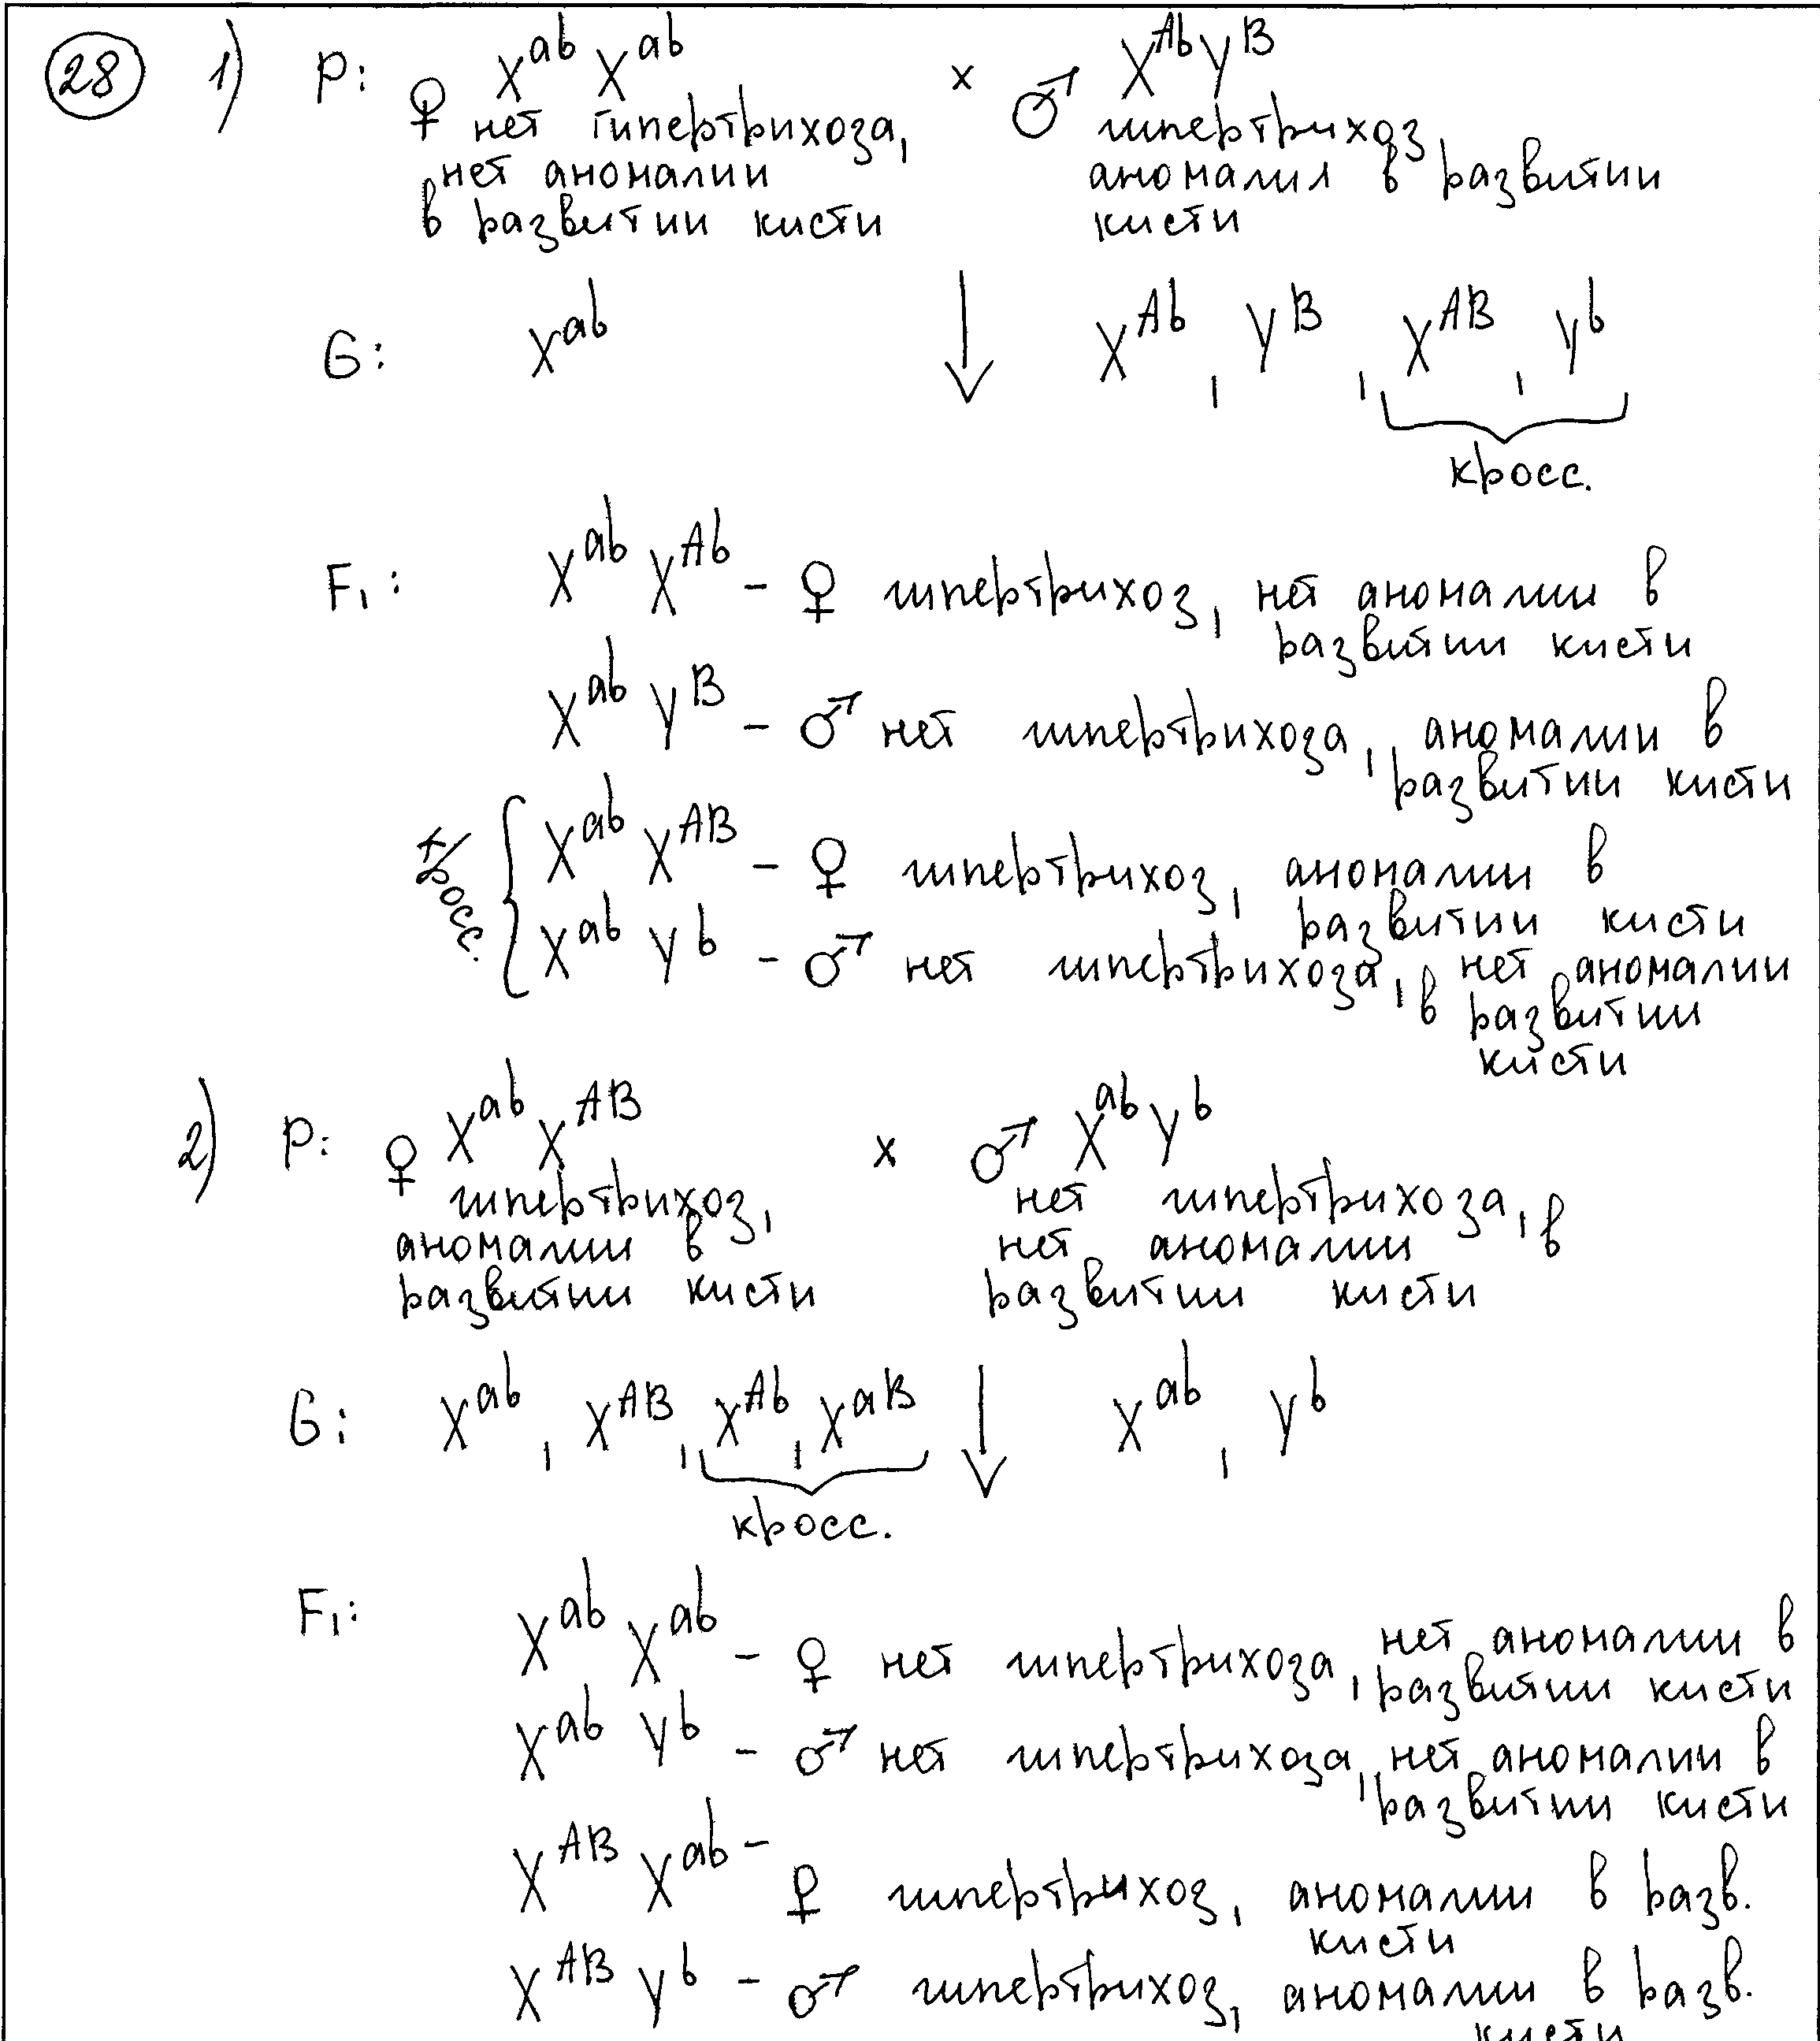 28 1) P: ♀ X^ab X^ab x ♂ X^Ab Y^B
нет гипертрихоза, гипертрихоз,
нет аномалии аномалия в развитии
в развитии кисти кисти
G: X^ab ↓ X^Ab, Y^B, X^AB, Y^b
кросс.
F1: X^ab X^Ab – ♀ гипертрихоз, нет аномалии в
развитии кисти
X^ab Y^B – ♂ нет гипертрихоза, аномалии в
развитии кисти
кросс. X^ab X^AB – ♀ гипертрихоз, аномалии в
развитии кисти
X^ab Y^b – ♂ нет гипертрихоза, нет аномалии
в развитии
кисти
2) P: ♀ X^ab X^AB x ♂ X^ab Y^b
гипертрихоз, нет гипертрихоза,
аномалии в нет аномалии в
развитии кисти развитии кисти
G: X^ab, X^AB, X^Ab, X^aB ↓ X^ab, Y^b
кросс.
F1: X^ab X^ab – ♀ нет гипертрихоза, нет аномалии в
развитии кисти
X^ab Y^b – ♂ нет гипертрихоза, нет аномалии в
развитии кисти
X^AB X^ab – ♀ гипертрихоз, аномалии в разв.
кисти
X^AB Y^b – ♂ гипертрихоз, аномалии в разв.
кисти